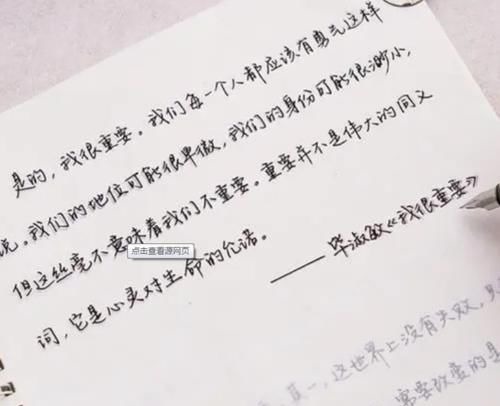 是的，我很重要。我们每一个人都应该有勇气这样
说。我们的地位可能很卑微，我们的身份可能很渺小，
但这丝毫不意味着我们不重要。重要并不是伟大的同义
词，它是心灵对生命的允诺。
——毕淑敏《我很重要》
点击查看源网页
真一，这世界上没有失败，只
需要改变的是